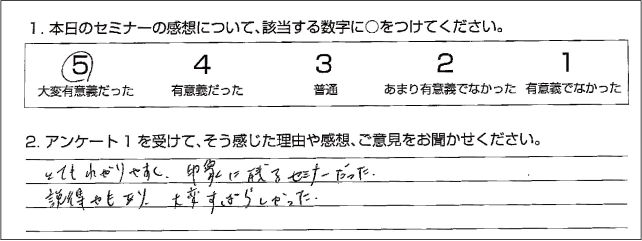 1. 本日のセミナーの感想について、該当する数字に○をつけてください。
5 4 3 2 1
大変有意義だった 有意義だった 普通 あまり有意義でなかった 有意義でなかった
2. アンケート1を受けて、そう感じた理由や感想、ご意見をお聞かせください。
とてもわかりやすく、印象に残るセミナーだった.
説得力もあり、大変すばらしかった.